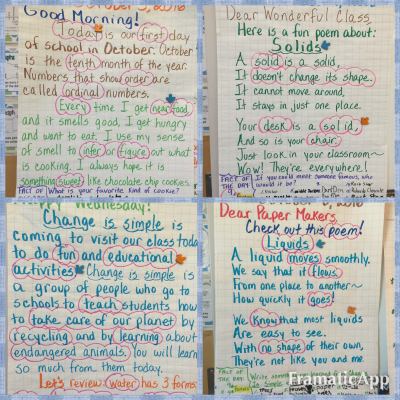 Good Morning!
Today is our first day
of school in October. October
is the tenth month of the year.
Numbers that show order are
called ordinal numbers.
Every time I get near food
and it smells good, I get hungry
and want to eat. I use my sense
of smell to infer or figure out what
is cooking. I always hope it is
something sweet, like chocolate chip cookies.
FACT OF What is your favorite kind of cookie?
Dear Wonderful Class,
Here is a fun poem about:
Solids
A solid is a solid,
It doesn't change its shape.
It cannot move around,
It stays in just one place.
Your desk is a solid,
And so is your chair,
Just look in your classroom~
Wow! They're everywhere!
FACT OF If you could meet someone famous, who
THE DAY: would it be?
Happy Wednesday!
Change is simple is
coming to visit our class today
to do fun and educational
activities. Change is simple is
a group of people who go to
schools to teach students how
to take care of our planet by
recycling and by learning about
endangered animals. You will learn
so much from them today.
Let's review: Water has 3 forms:
Dear Paper Makers,
Check out this poem!
Liquids
A liquid moves smoothly.
We say that it flows
From one place to another~
How quickly it goes!
We know that most liquids
Are easy to see.
With no shape of their own,
They're not like you and me.
FACT OF
THE DAY:
FramaticApp